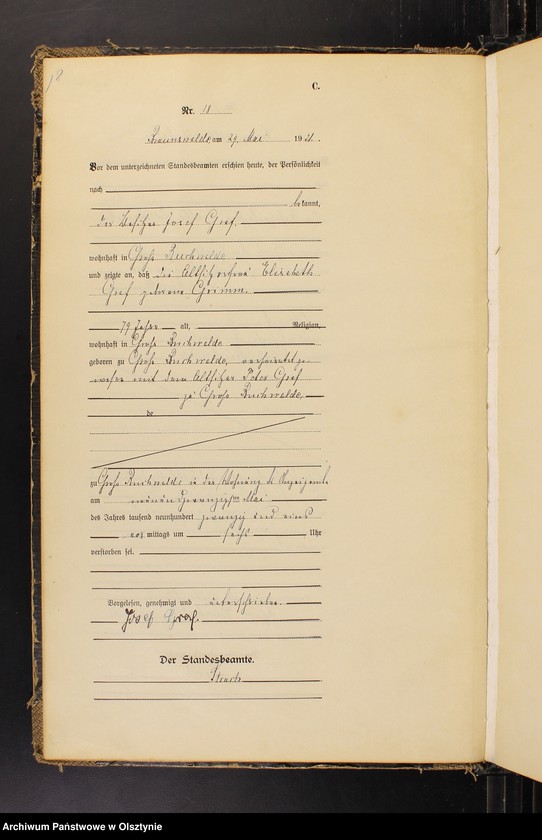 C.
Nr. 11
Braunswalde am 29. Mai 1921.
Vor dem unterzeichneten Standesbeamten erschien heute, der Persönlichkeit
nach
bekannt,
der Besitzer Josef Graf.
wohnhaft in Groß Buchwalde
und zeigte an, daß die Altsitzerfrau Elisabeth
Graf geborene Grimm.
79 Jahre alt, Religion,
wohnhaft in Groß Buchwalde
geboren zu Groß Buchwalde, verheiratet ge-
wesen mit dem Altsitzer Graf
zu Groß Buchwalde.
de
zu Groß Buchwalde in der Wohnung des Anzeigenden
am neunundzwanzigsten Mai
des Jahres tausend neunhundert zwanzig und eins
vormittags um sechs Uhr
verstorben sei.
Vorgelesen, genehmigt und unterschrieben.
Josef Graf.
Der Standesbeamte.
Archiwum Państwowe w Olsztynie